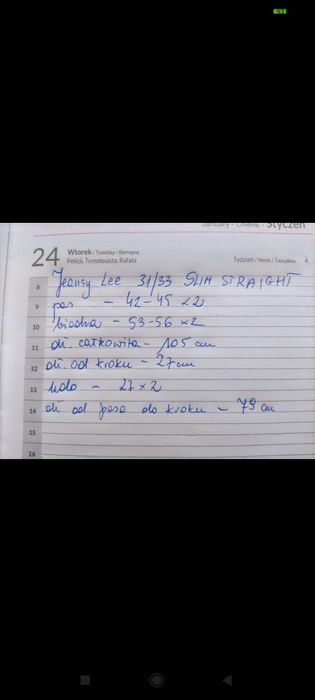 Styczeń
24 Wtorek / Tuesday / Вівторок
Felicji, Tymoteusza, Rafała
Tydzień / Week / Тиждень 4
8 Jeansy Lee 31/33 SLIM STRAIGHT
9 pas - 42-45 x2
10 biodra - 53-56 x2
11 dł. całkowita - 105 cm
12 dł. od kroku - 27 cm
13 udo - 27 x 2
14 dł od pasa do kroku - 79 cm
15
16